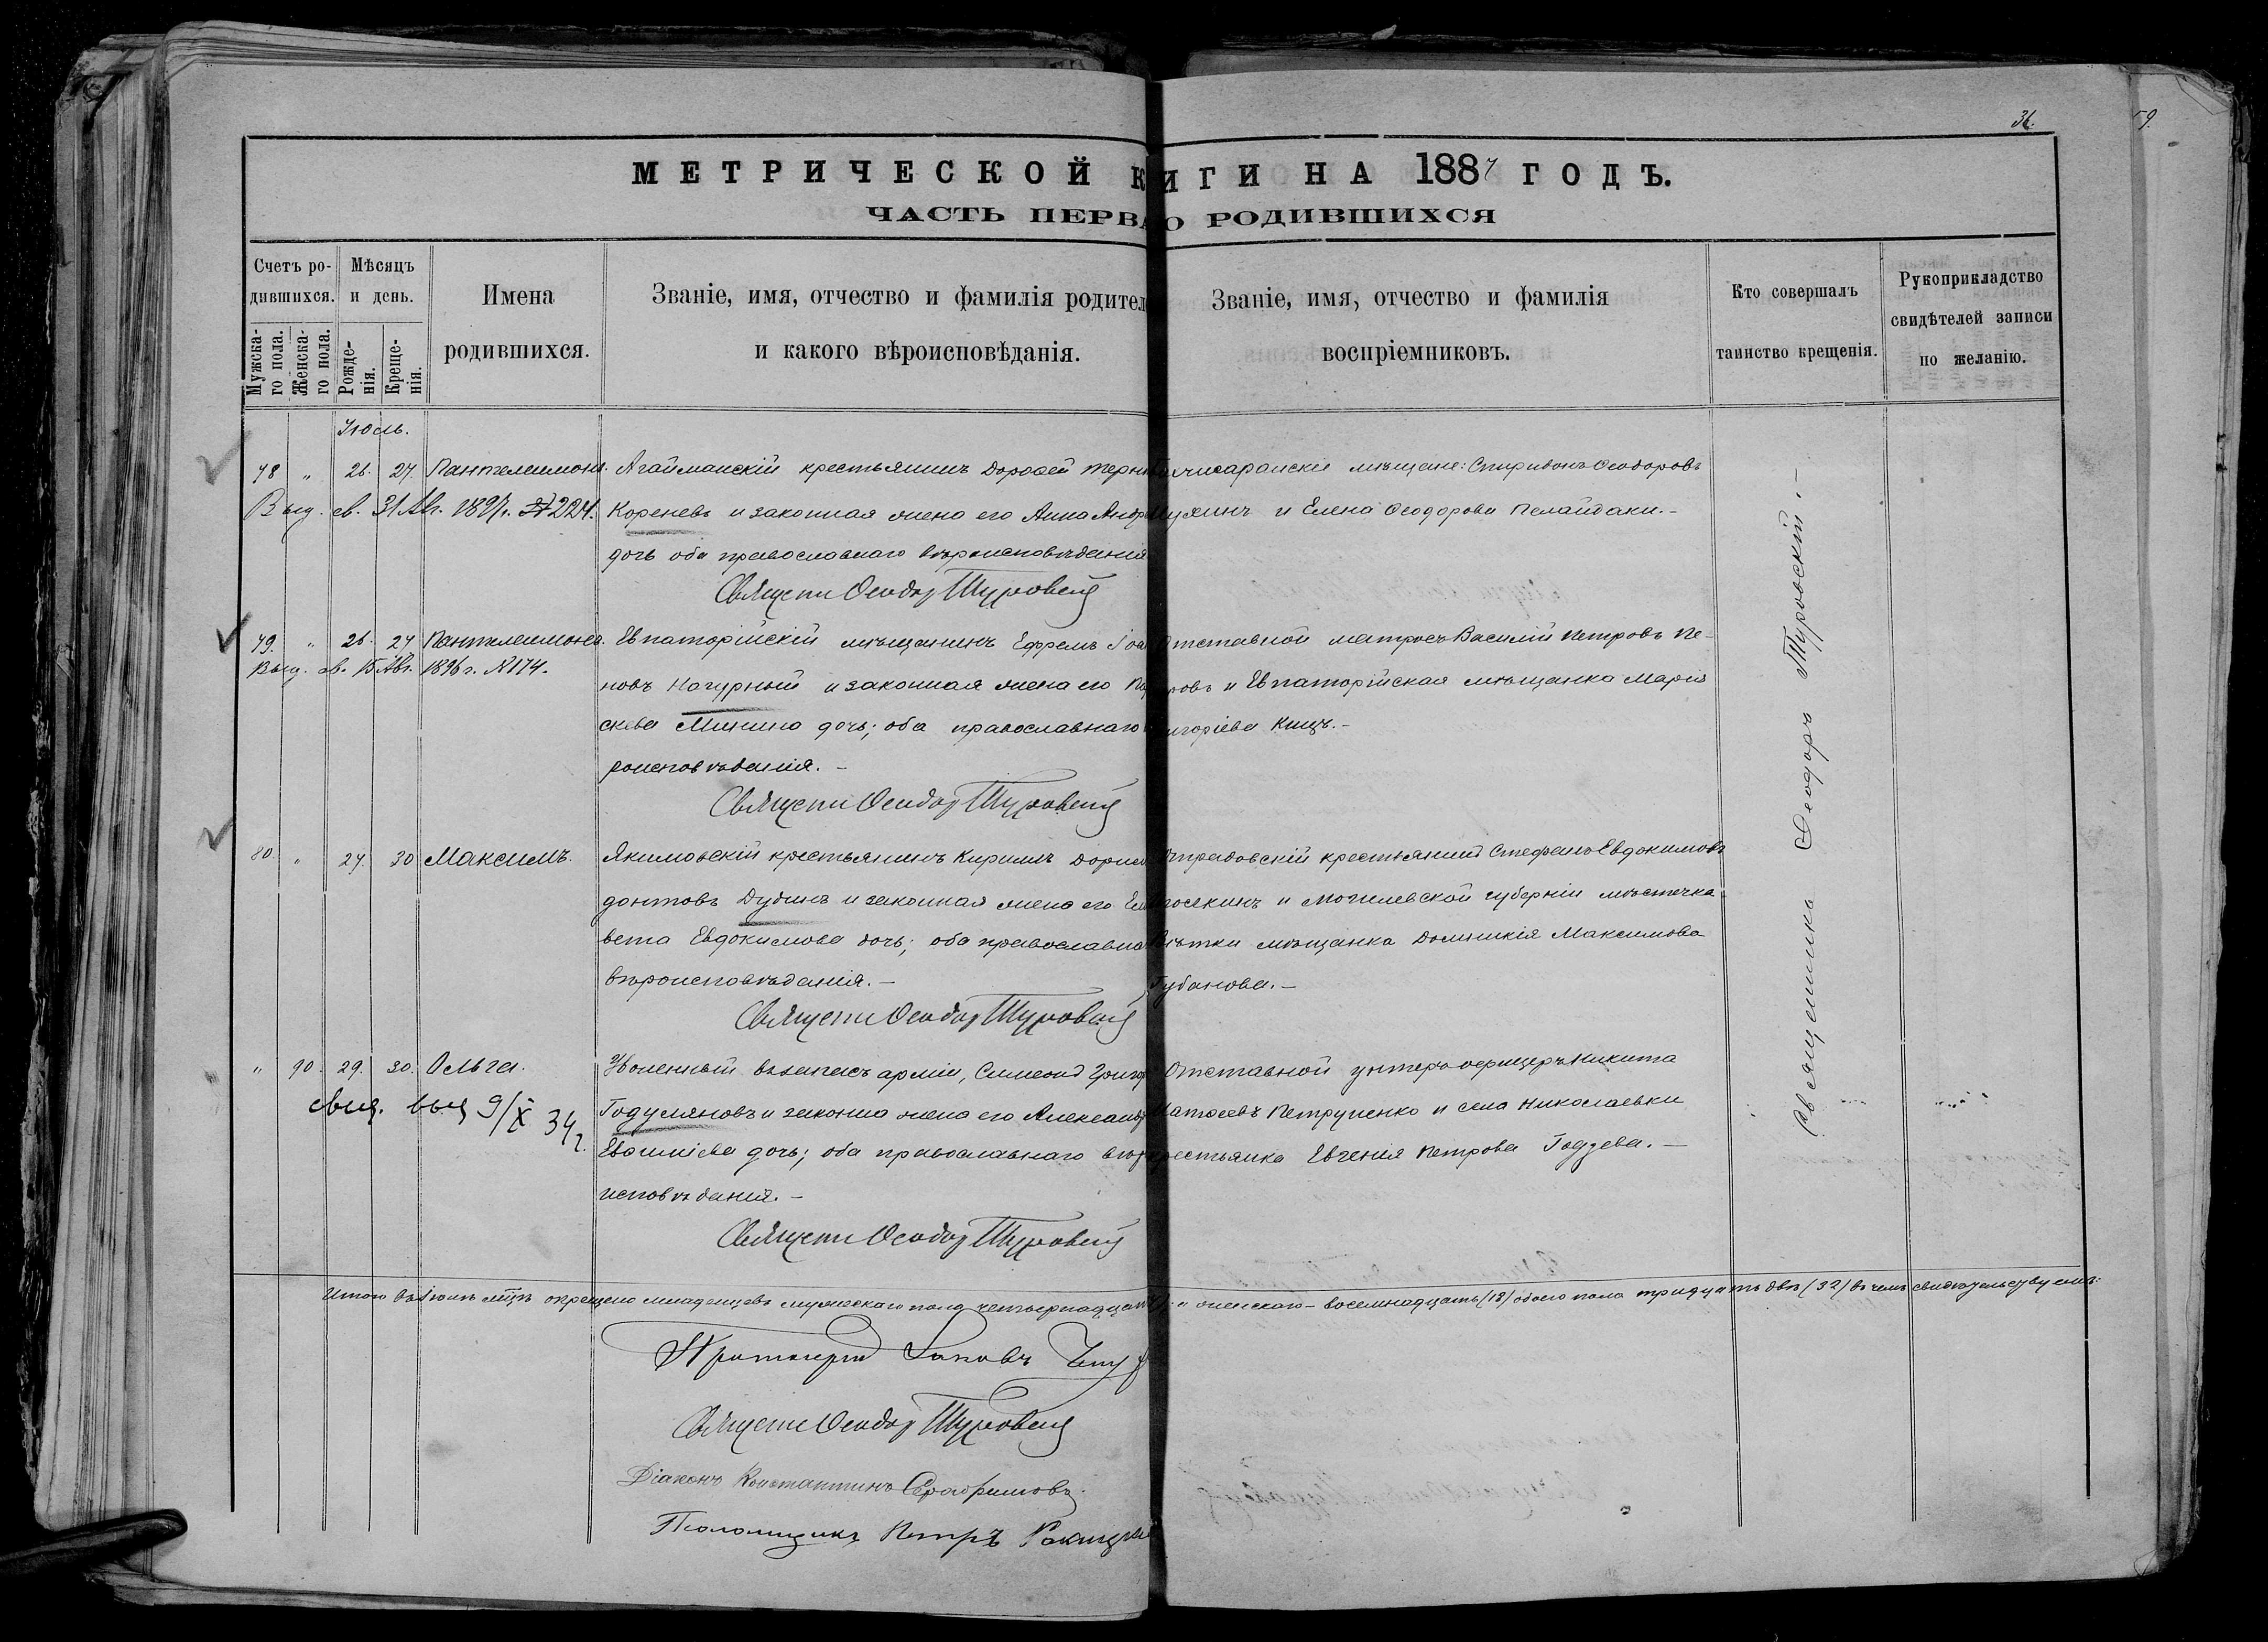 31. 59.
МЕТРИЧЕСКОЙ К ИГИ НА 1887 ГОДЪ.
ЧАСТЬ ПЕРВА О РОДИВШИХСЯ
Счетъ ро-
дившихся.
Мужска-
го пола.
Женска-
го пола.
Мѣсяцъ
и день.
Рожде-
нія.
Креще-
нія.
Имена
родившихся.
Званіе, имя, отчество и фамилія родител
и какого вѣроисповѣданія.
Званіе, имя, отчество и фамилія
воспріемниковъ.
Кто совершалъ
таинство крещенія.
Рукоприкладство
свидѣтелей записи
по желанію.
Іюль.
78 " 26. 27. Пантелеимонъ.
Выд. св. 31 Авг. 1897г. № 224.
Агайманскій крестьянинъ Дороѳей
Кореневъ и законная жена его Анна Андр
дочь оба православнаго вѣроисповѣданія
Священ Ѳеодор Туровскій
хчисарайскіе мѣщане: Спиридонъ Ѳеодоровъ
и Елена Ѳеодорова Пелайдаки.-
79. " 26. 27 Пантелеимонъ.
Выд. св. 15 Авг. 1896 г. №174.
Евпаторійскій мѣщанинъ Ефремъ Іоан
новъ Нагурный и законная жена его Па
скева Минина дочь; оба православнаго
роисповѣданія.-
Священ Ѳеодор Туровскій
Отставной матросъ Василій Петровъ Пе-
ровъ и Евпаторійская мѣщанка Марія
игоріева Кищъ.-
80 " 27. 30 Максимъ.
Якимовскій крестьянинъ Кириллъ Дорме
донтовъ Дудинъ и законная жена его Ели
вета Евдокимова дочь; оба православна
вѣроисповѣданія.-
Священ Ѳеодор Туровскій
крестьянинъ Стефанъ Евдокимовъ
и Могилевской губерніи мѣстечка
ѣтки мѣщанка Домникія Максимова
Губанова.-
" 90. 29. 30. Ольга.
свид. выд 9/X 34г.
Уволенный въ запасъ арміи, Симеонъ Григор
Годуляновъ и законна жена его Александр
дочь; оба православнаго вѣр
исповѣданія.-
Священ Ѳеодор Туровскій
Отставной унтеръ офицеръ Никита
Матѳеевъ Петрупенко и села Николаевки
рестьянка Евгенія Петрова Годзева.-
Священникъ Ѳеодоръ Туровскій.-
Итого въ Іюлѣ м-цѣ окрещено младенцевъ мужескаго пола четырнадцать и женскаго - восемнадцать (18) обоего пола тридцать два (32) въ чемъ свидѣтельствуемъ:
Протоіерей
Священ Ѳеодор Туровскій
Діаконъ Константинъ Серафимовъ.
Псаломщикъ Петръ Ракицкій